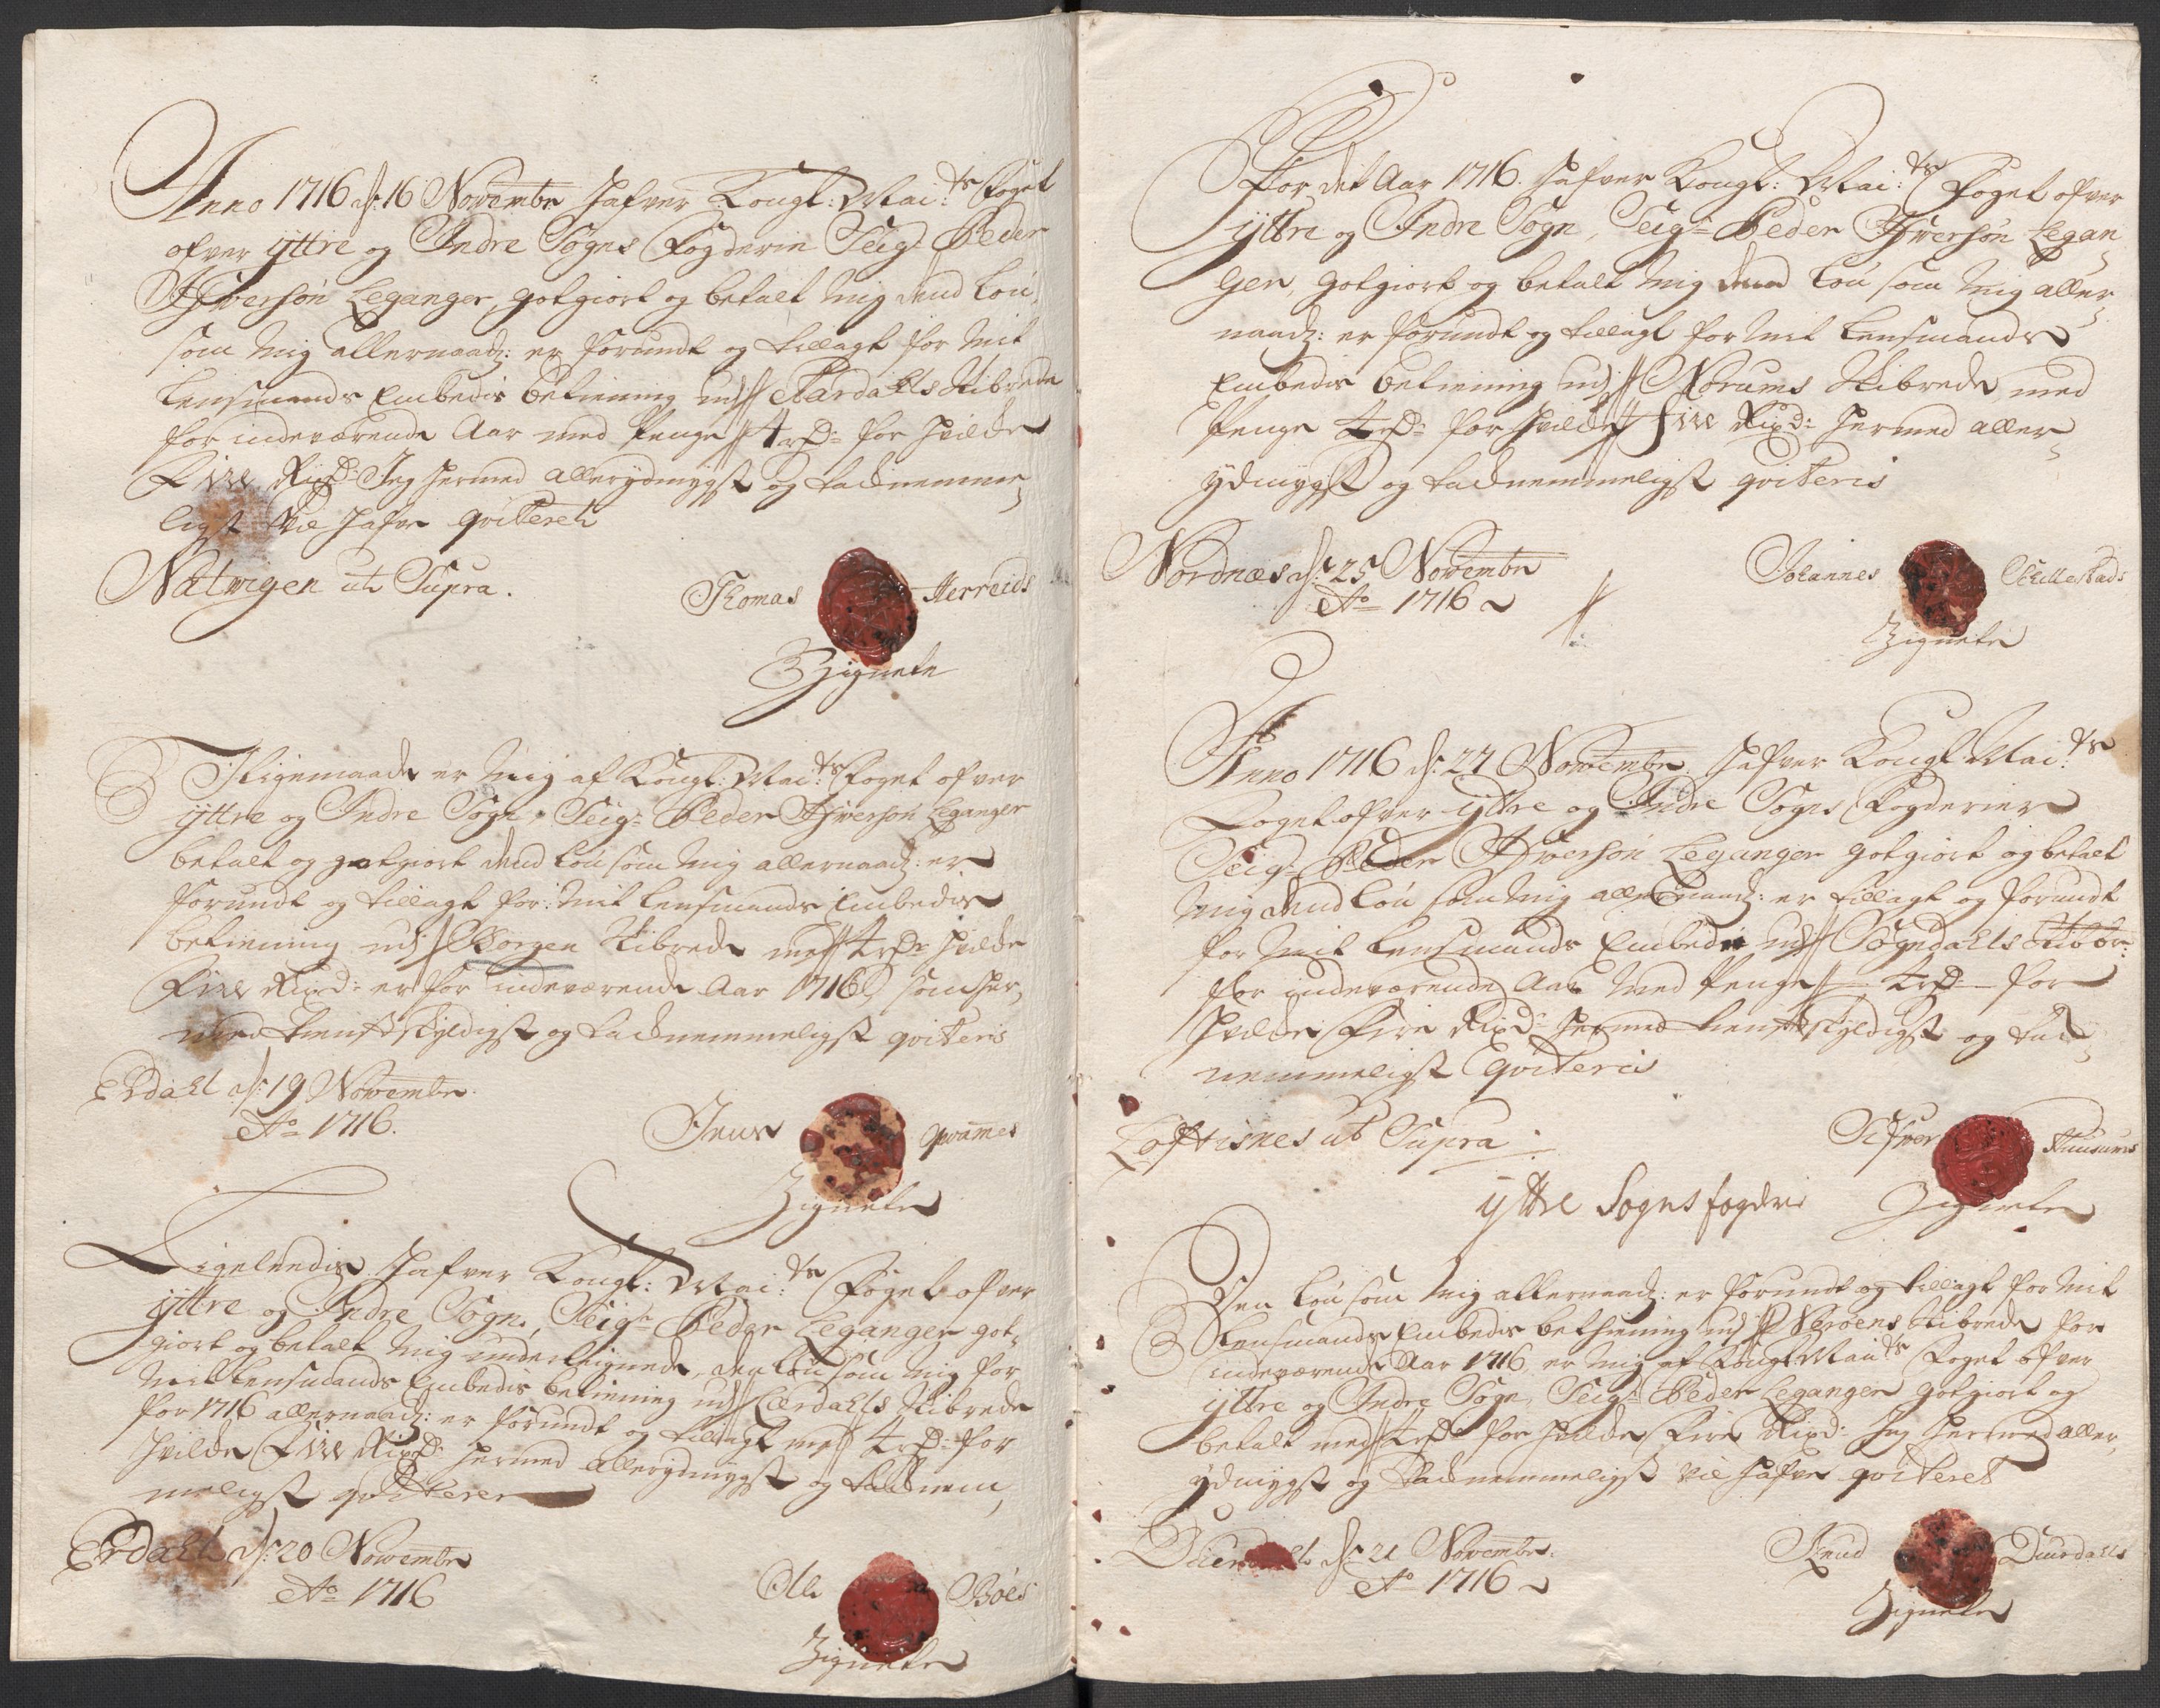 Anno 1716 d: 16 Novembr hafver Kongl: Mai:ts Foget
ofver ÿttre og Indre Sogns Fogderie Seigr Peder
Ifversøn Leganger, gotgiort og betalt mig dend Løn,
som mig allernaad: er forundt og tillagt for mit
Lensmands Embedis betiening udj Aardahls Skibrede
for indeværende Aar med Penge 4 rd: for hvilde
Fire Rixd: Jeg hermed allerydmygst og tacknemme
ligst vil hafve qviteret
Nætwigen ut Supra.
Thomas Herreids
Zignete
I Ligemaade er mig af Kongl: Mai:ts Foget ofver
ÿttre og Indre Sogn, Seigr Peder Ifversøn Leganger
betalt og gotgiort dend Løn som mig allernaad: er
forundt og tillagt for mit Lensmands Embedis
betiening udj Borgen Skibrede med 4 rd: hvilde
Fire Rixd: er for indeværende Aar 1716, som her,
med tienstskyldigst og tacknemmeligst qviteris
Erdahl d: 19 Novembr.
Ao 1716.
Jens Qvames
Zignete
Ligeledis hafver Kongl: Mai:ts Foget ofver
ÿttre og Indre Sogn, Seigr Peder Leganger got,
giort og betalt mig underteignede, den Løn som mig for
mit Lensmands Embedis betiening udj Lærdahls Skibrede
for 1716 allernaad: er forundt og tillagt med 4 rd: for
hvilde Fire Rixd: hermed allerydmygst og tacknem,
meligst qviterer
Erdahl d: 20 Novembr
Ao 1716
Olle Bøes
Zignete
For det Aar 1716. hafver Kongl: Mai:ts Foget ofver
ÿttre og Indre Sogn, Seigr Peder Ifversøn Legan
ger, gotgiort og betalt mig dend Løn som mig aller
naad: er forundt og tillagt for mit Lensmands
Embedis betiening udj Norums Skibrede med
Penge 4 rd: for hvilde Fire Rixd: hermed aller
ydmygst og tacknemmeligst qviteris
Nordnæs d: 25 Novembr
Ao 1716
Johannes
Zignete
Anno 1716 d: 27 Novembr hafver Kongl Mai:ts
Foget ofver ÿttre og Indre Sogns Fogderier
Seigr Peder Ifversøn Leganger gotgiort og betalt
mig dend Løn som mig allernaad: er tillagt og forundt
for mit Lensmands Embede udj Sogndahls Skibr:
for indeværende Aar med Penge 4 rd: for
hvilde Fire Rixd: hermed tienstskyldigst og tack
nemmeligst qviteris
Loftisnes ut Supra
Sifver
Zignete
ÿttre Sogns fogderi
Den Løn som mig allernaad: er forundt og tillagt for mit
Lensmands Embedis bethiening udj Verøens Skibrede for
indeværende Aar 1716, er mig af Kongl Mai:ts Foget ofver
ÿttre og Indre Sogn, Seigr Peder Leganger gotgiort og
betalt med 4 rd: for hvilde Fire Rixd: Jeg hermed aller,
ydmygst og tacknemmeligst vil hafve qviteret
d: 21 Novembr.
Ao 1716
Knud Duurdahls
Zignete